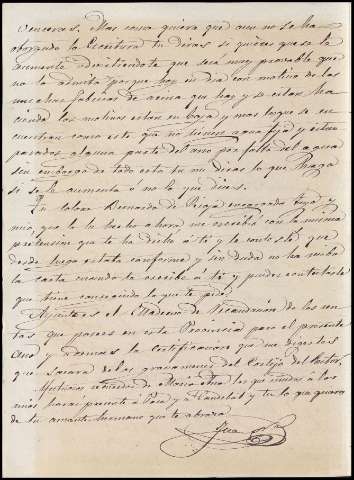 venceras. Mas como quiera que aun no se ha
otorgado la Escritura tu diras si quieres que se la
aumente advirtiendote que sera muy provable que
no la admita porque hoy en dia con motivo de las
muchas fabricas de arina que hay y se estan ha
ciendo los molinos estan en baja y mas los que se en
cuentran como este que no tienen agua fija y estan
parados alguna parte del año por falta del agua
sin embargo de todo esto tu me diras lo que haga
si se le aumenta ó no lo que dices.
Tu Bernardo de Rioja encargado tuyo y
mio, que lo he hecho ahora me escribió con la misma
pretension que te ha dicho á tí y le contesté que
desde luego estaba conforme y sin duda no ha recibido
la carta cuando te escribe á tí y puedes contestarle
que tiene concedido lo que te pide.
el de las ren
tas que posees en esta Provincia para el presente
año y la certificacion que me dices los
que sacara de los gravamenes del Cortijo del
retenidos de Maria Ana los que unidos a los
mios harás presente á Pepa y á Candelas y tu lo que quieras
de tu amante hermano que te abraza